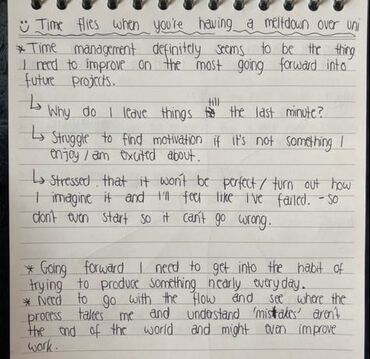 ☺ Time flies when you're having a meltdown over uni
* Time management definitely seems to be the thing
I need to improve on the most going forward into
future projects.
↳ Why do I leave things till the last minute?
↳ Struggle to find motivation if it's not something I
enjoy / am excited about.
↳ Stressed that it won't be perfect / turn out how
I imagine it and I'll feel like I've failed. - so
don't even start so it can't go wrong.
* Going forward I need to get into the habit of
trying to produce something nearly everyday.
* Need to go with the flow and see where the
process takes me and understand 'mistakes' aren't
the end of the world and might even improve
work.